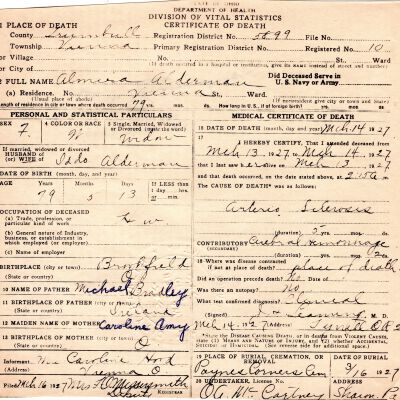 DEPARTMENT OF HEALTH
DIVISION OF VITAL STATISTICS
CERTIFICATE OF DEATH
1 PLACE OF DEATH
County Trumbull Registration District No. 5899 File No.
Township Vienna Primary Registration District No. Registered No. 10
or Village
or City of No. St., Ward
2 FULL NAME Almira Alderman Did Deceased Serve in U. S. Navy or Army
(a) Residence. No. Vienna St., Ward.
(Usual place of abode) (If nonresident give city or town and State)
Length of residence in city or town where death occurred 79 yrs. mos. ds. How long in U. S., if of foreign birth? yrs. mos. ds.
PERSONAL AND STATISTICAL PARTICULARS
3 SEX F
4 COLOR OR RACE W
5 Single, Married, Widowed or Divorced (write the word) Widow
If married, widowed or divorced
HUSBAND of
(or) WIFE of Alderman
6 DATE OF BIRTH (month, day, and year)
7 AGE Years 79 Months 5 Days 13 If LESS than 1 day hrs. or min.
8 OCCUPATION OF DECEASED
(a) Trade, profession, or particular kind of work
(b) General nature of Industry, business, or establishment in which employed (or employer)
(c) Name of employer
9 BIRTHPLACE (city or town) Brookfield
(State or country) O
10 NAME OF FATHER Michael Bradley
11 BIRTHPLACE OF FATHER (city or town)
(State or country) Ireland
12 MAIDEN NAME OF MOTHER Caroline Amy
13 BIRTHPLACE OF MOTHER (city or town)
(State or country) O
14 Informant Mrs Caroline Hood
(Address) Vienna O
15 Filed Mch 16 1927
REGISTRAR
MEDICAL CERTIFICATE OF DEATH
16 DATE OF DEATH (month, day and year) Mch 14 1927
17 I HEREBY CERTIFY, That I attended deceased from
Mch 13, 1927, to Mch 14, 1927
that I last saw her alive on Mch 13, 1927
and that death occurred, on the date stated above, at 2:15 a m.
The CAUSE OF DEATH* was as follows:
Arterio Sclerosis
(duration) 5 yrs. mos. ds.
CONTRIBUTORY Cerebral Hemorrhage
(SECONDARY)
(duration) yrs. mos. 2 ds.
18 Where was disease contracted
if not at place of death? place of death
Did an operation precede death? no Date of
Was there an autopsy? No
What test confirmed diagnosis? Clinical
(Signed) M. D.
Mch 14, 1927 (Address)
19 PLACE OF BURIAL, CREMATION, OR REMOVAL Paynes Corners Cem
DATE OF BURIAL 3/16 1927
20 UNDERTAKER, License No.
O.G. McCartney Sharon, Pa